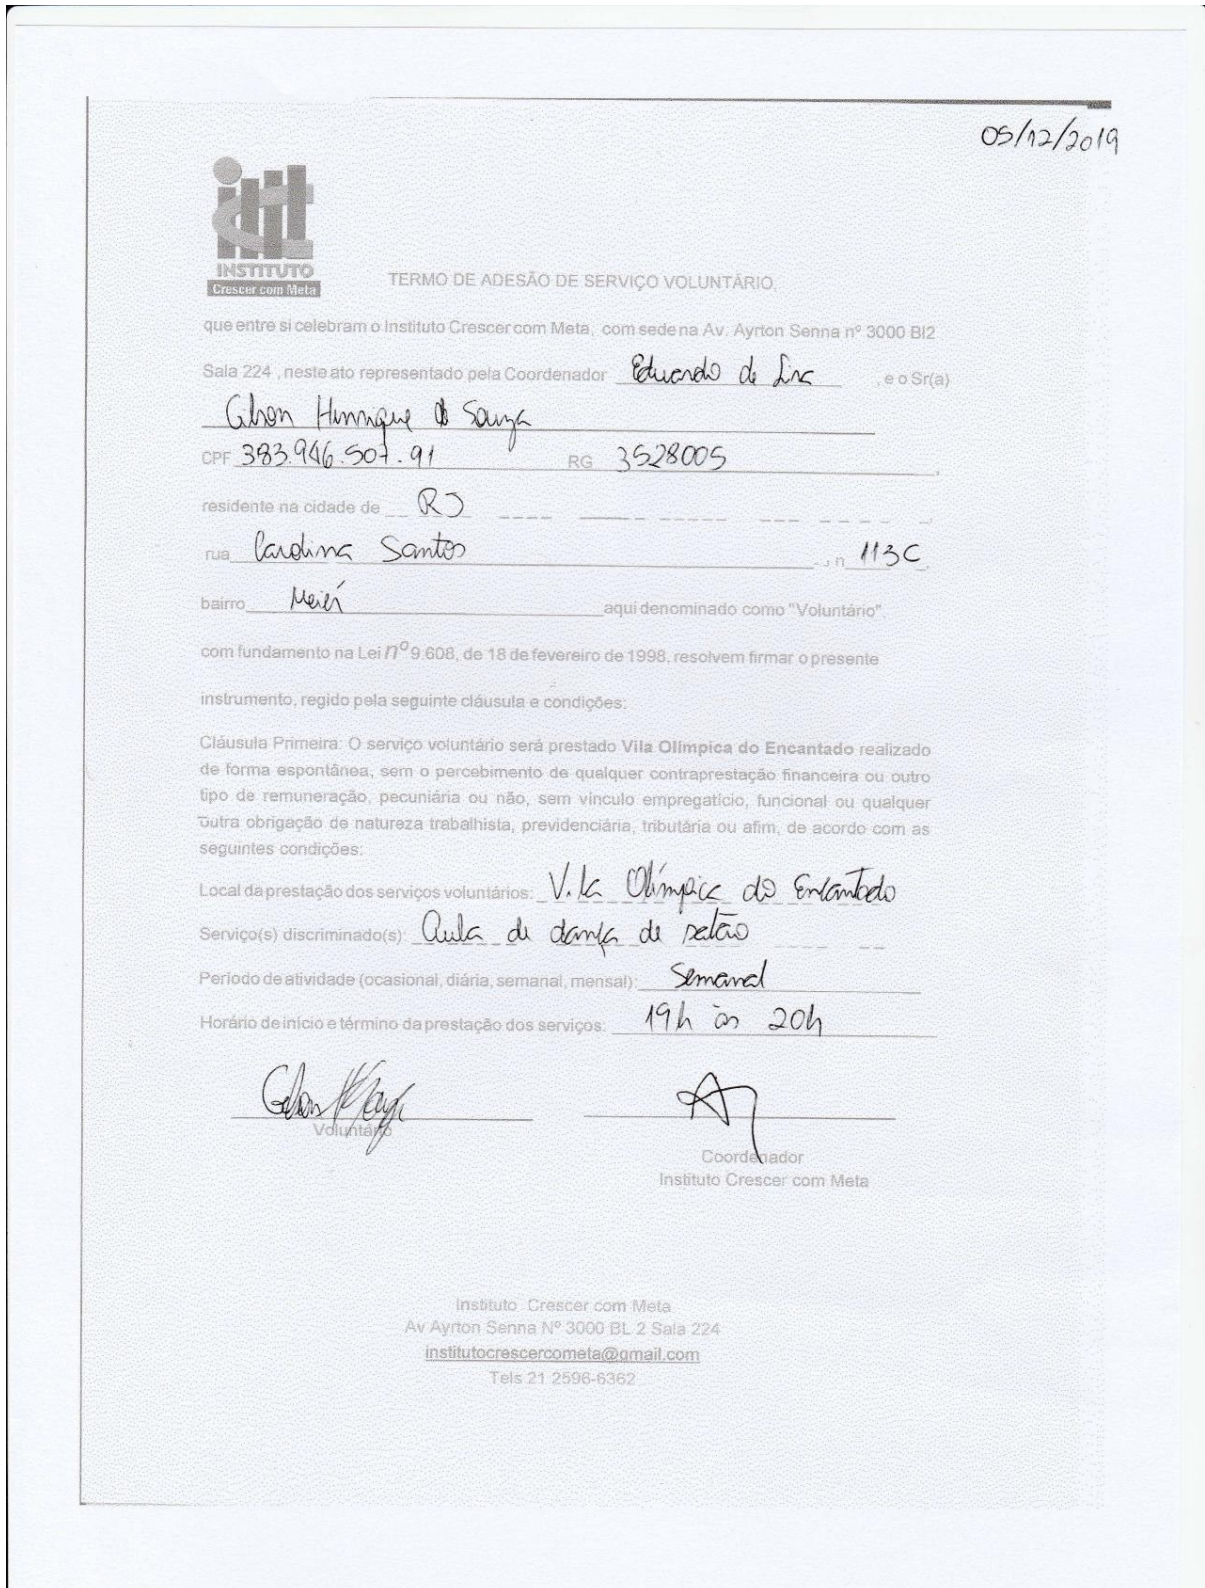 05/12/2019
INSTITUTO
Crescer com Meta
TERMO DE ADESÃO DE SERVIÇO VOLUNTÁRIO,
que entre si celebram o Instituto Crescer com Meta, com sede na Av. Ayrton Senna nº 3000 Bl2
Sala 224 , neste ato representado pela Coordenador Eduardo de , e o Sr(a)
Henrique Souza
CPF 383.946.507.91 RG 3528005
residente na cidade de RJ
rua Carolina Santos , n 113C
bairro Meiér aqui denominado como "Voluntário",
com fundamento na Lei nº 9.608, de 18 de fevereiro de 1998, resolvem firmar o presente
instrumento, regido pela seguinte cláusula e condições:
Cláusula Primeira: O serviço voluntário será prestado Vila Olímpica do Encantado realizado
de forma espontânea, sem o percebimento de qualquer contraprestação financeira ou outro
tipo de remuneração, pecuniária ou não, sem vínculo empregatício, funcional ou qualquer
outra obrigação de natureza trabalhista, previdenciária, tributária ou afim, de acordo com as
seguintes condições:
Local da prestação dos serviços voluntários: Vila Olímpica do Encantado
Serviço(s) discriminado(s): Aula de dança de salão
Período de atividade (ocasional, diária, semanal, mensal): Semanal
Horário de início e término da prestação dos serviços: 19h às 20h
Voluntário
Coordenador
Instituto Crescer com Meta
Instituto Crescer com Meta
Av Ayrton Senna Nº 3000 BL 2 Sala 224
institutocrescercometa@gmail.com
Tels 21 2596-6362